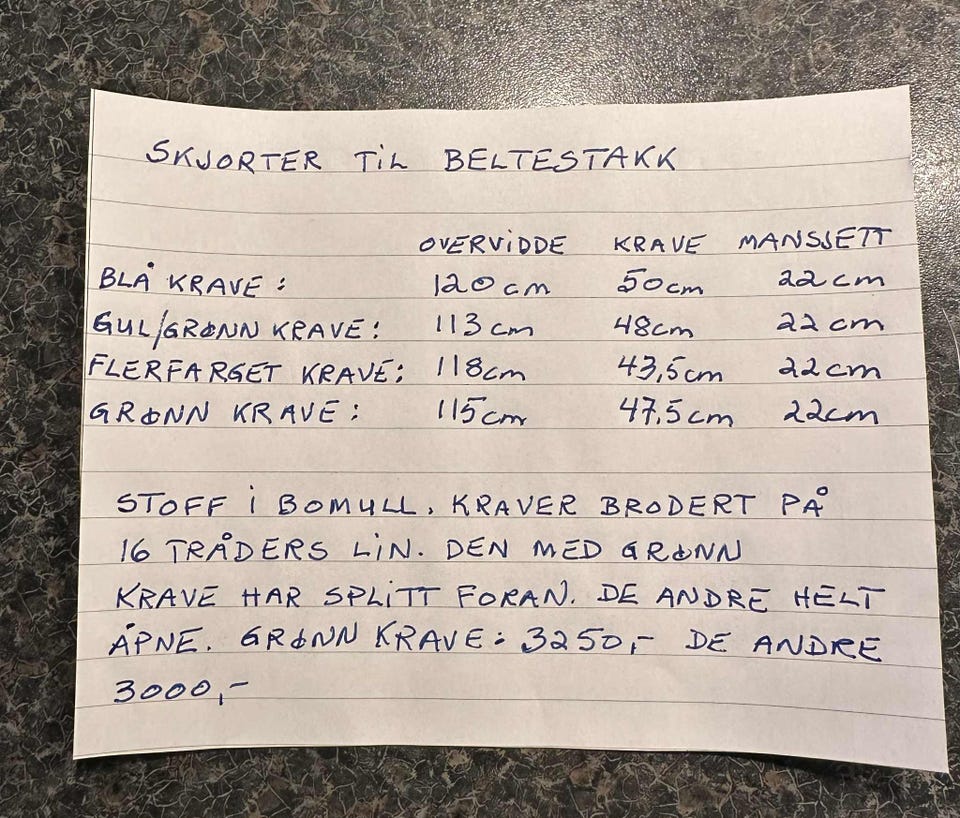 SKJORTER TIL BELTESTAKK
OVERVIDDE KRAVE MANSJETT
BLÅ KRAVE: 120cm 50cm 22cm
GUL/GRØNN KRAVE: 113cm 48cm 22cm
FLERFARGET KRAVE: 118cm 43,5cm 22cm
GRØNN KRAVE: 115cm 47,5cm 22cm
STOFF I BOMULL. KRAVER BRODERT PÅ
16 TRÅDERS LIN. DEN MED GRØNN
KRAVE HAR SPLITT FORAN. DE ANDRE HELT
ÅPNE. GRØNN KRAVE: 3250,- DE ANDRE
3000,-